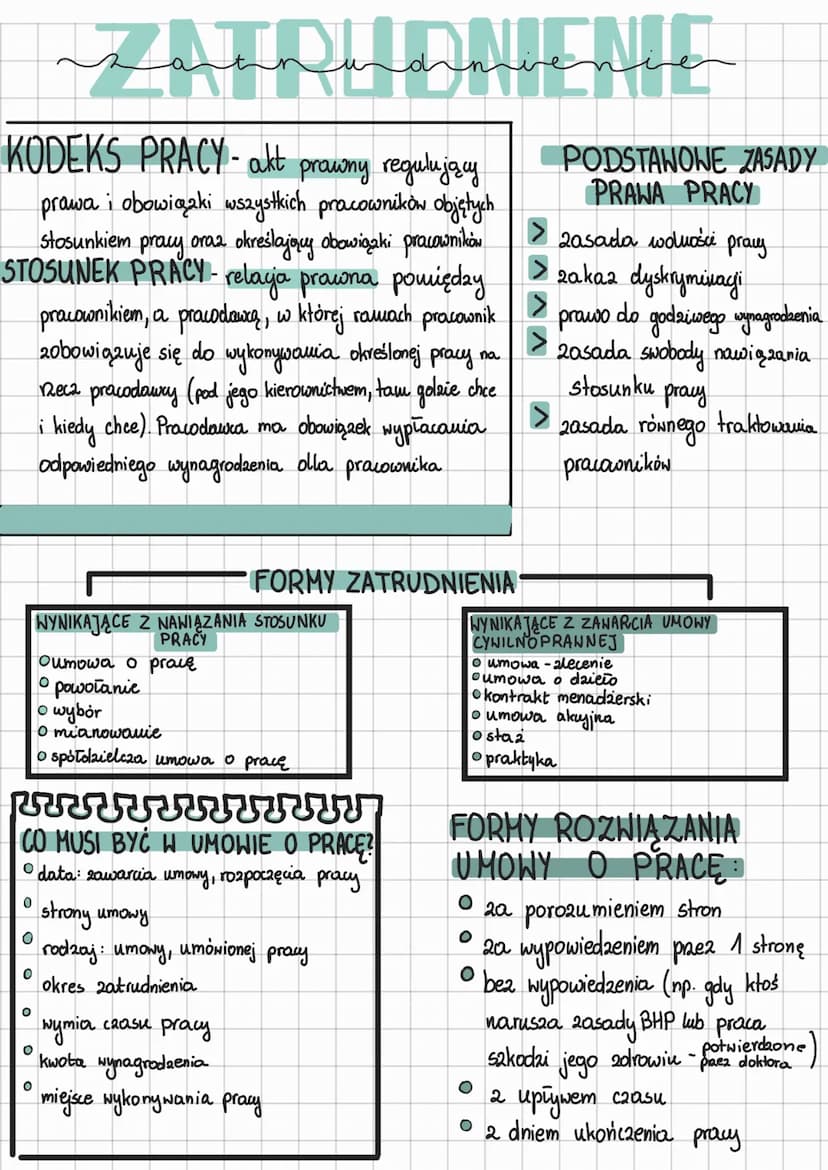 ZATRUDNIENIE
zatrudnienie
KODEKS PRACY - akt prawny regulujący
prawa i obowiązki wszystkich pracowników objętych
stosunkiem pracy oraz określający obowiązki pracowników
STOSUNEK PRACY - relacja prawna pomiędzy
pracownikiem, a pracodawcą, w której ramach pracownik
zobowiązuje się do wykonywania określonej pracy na
rzecz pracodawcy (pod jego kierownictwem, tam gdzie chce
i kiedy chce). Pracodawca ma obowiązek wypłacania
odpowiedniego wynagrodzenia dla pracownika
PODSTAWOWE ZASADY
PRAWA PRACY
> zasada wolności pracy
> zakaz dyskryminacji
> prawo do godziwego wynagrodzenia
> zasada swobody nawiązania
stosunku pracy
> zasada równego traktowania
pracowników
FORMY ZATRUDNIENIA
WYNIKAJĄCE Z NAWIĄZANIA STOSUNKU
PRACY
umowa o pracę
powołanie
wybór
mianowanie
spółdzielcza umowa o pracę
WYNIKAJĄCE Z ZAWARCIA UMOWY
CYWILNOPRAWNEJ
umowa - zlecenie
umowa o dzieło
kontrakt menadżerski
umowa akcyjna
staż
praktyka
CO MUSI BYĆ W UMOWIE O PRACĘ?
data: zawarcia umowy, rozpoczęcia pracy
strony umowy
rodzaj: umowy, umówionej pracy
okres zatrudnienia
wymia czasu pracy
kwota wynagrodzenia
miejsce wykonywania pracy
FORMY ROZWIĄZANIA
UMOWY O PRACĘ:
za porozumieniem stron
za wypowiedzeniem przez 1 stronę
bez wypowiedzenia (np. gdy ktoś
narusza zasady BHP lub praca
szkodzi jego zdrowiu - potwierdzone
przez doktora)
z upływem czasu
z dniem ukończenia pracy